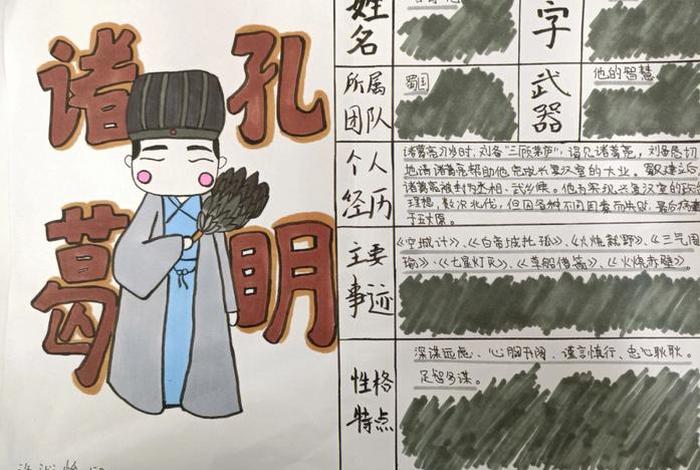 诸 孔
葛 明
姓名
字
所属团队
蜀国
武器
他的智慧
个人经历
诸葛亮27岁时,刘备"三顾茅庐",请见诸葛亮,刘备恳切
地请诸葛亮帮助他完成兴复汉室的大业。蜀汉建立后,
诸葛亮被封为丞相、武乡侯。他为实现兴复汉室的政治
理想,数次北伐,但因各种不同因素而失败,最后病逝
于五丈原。
主要事迹
《空城计》、《白帝城托孤》、《火烧新野》、《三气周
瑜》、《七星灯灭》、《草船借箭》、《火烧赤壁》
性格特点
深谋远虑、心胸开阔、谨言慎行、忠心耿耿、
足智多谋。